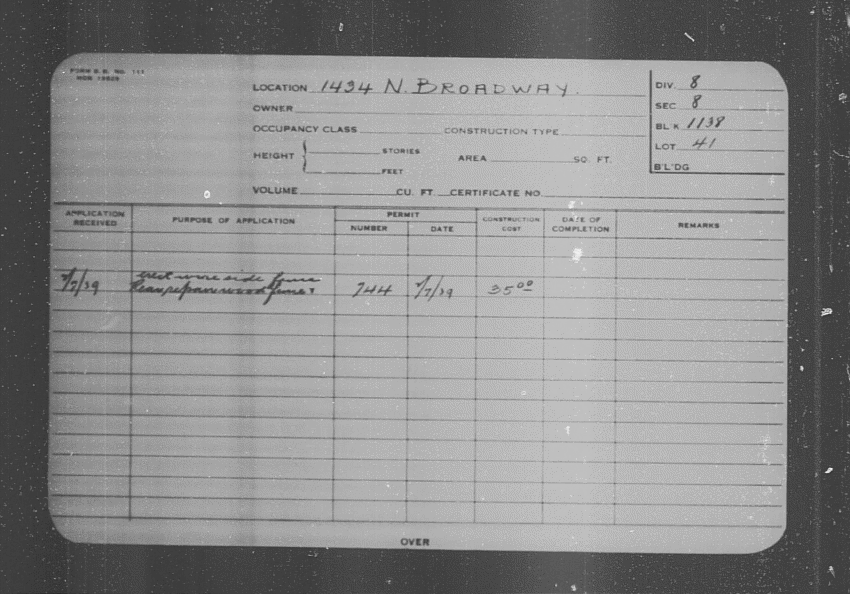 FORM B. B. NO. 113
LOCATION 1434 N. BROADWAY.
OWNER
OCCUPANCY CLASS CONSTRUCTION TYPE
HEIGHT STORIES AREA SQ. FT.
FEET
VOLUME CU. FT. CERTIFICATE NO.
DIV. 8
SEC 8
BL'K 1138
LOT 41
B'L'DG
APPLICATION RECEIVED PURPOSE OF APPLICATION PERMIT CONSTRUCTION COST DATE OF COMPLETION REMARKS
NUMBER DATE
erect wire side fence
/7/39 repair wood fence 744 /7/39 35 00
OVER